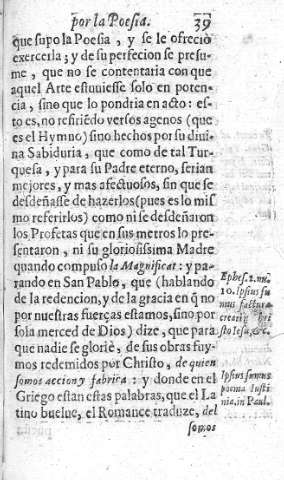 por la Poesia. 39
que supo la Poesia, y se le ofreciò
exercerla; y de su perfecion se presu-
me, que no se contentaria con que
aquel Arte estuuiesse solo en poten-
cia, sino que lo pondria en acto: es-
to es, no refiriẽdo versos agenos (que
es el Hymno) sino hechos por su diui-
na Sabiduria, que como de tal Tur-
quesa, y para su Padre eterno, serian
mejores, y mas afectuosos, sin que se
desdeñasse de hazerlos (pues es lo mis
mo referirlos) como ni se desdeñaron
los Profetas que en sus metros lo pre-
sentaron, ni su gloriosissima Madre
quando compuso la Magnificat: y pa-
rando en San Pablo, que (hablando
de la redencion, y de la gracia en q̃ no
por nuestras fuerças estamos, sino por
sola merced de Dios) dize, que para
que nadie se glorie, de sus obras fuy-
mos redemidos por Christo, de quien
somos accion y fabrica: y donde en el
Griego estan estas palabras, que el La
tino buelue, el Romance traduze, del
somos
Ephes. 2. nu.
10. Ipsius su
mus factura
creati
sto Iesu, &c.
Ipsius sumus
poema Iusti
nia. in Paul.